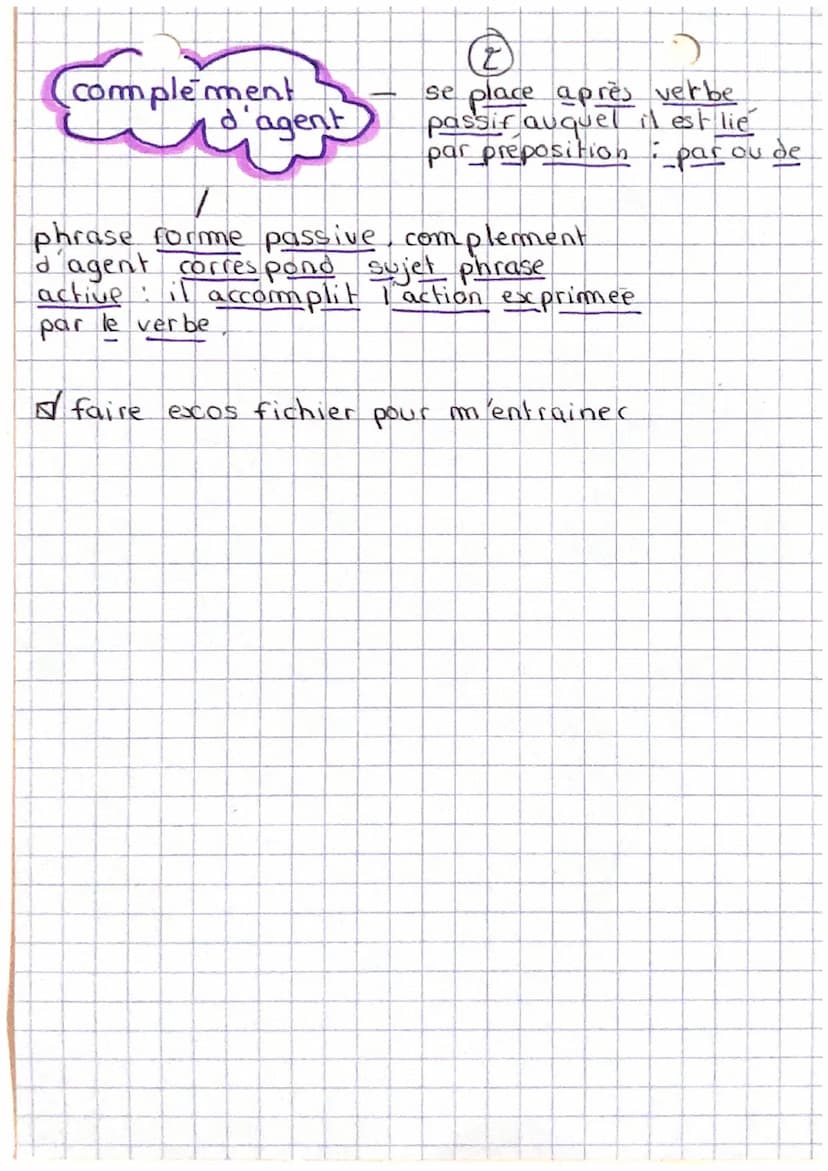 ②
complément
d'agent
— se place après verbe
passif auquel il est lié
par préposition : par ou de
phrase forme passive, complement
d'agent correspond sujet phrase
active : il accomplit l'action exprimée
par le verbe.
☑ faire exos fichier pour m'entrainer